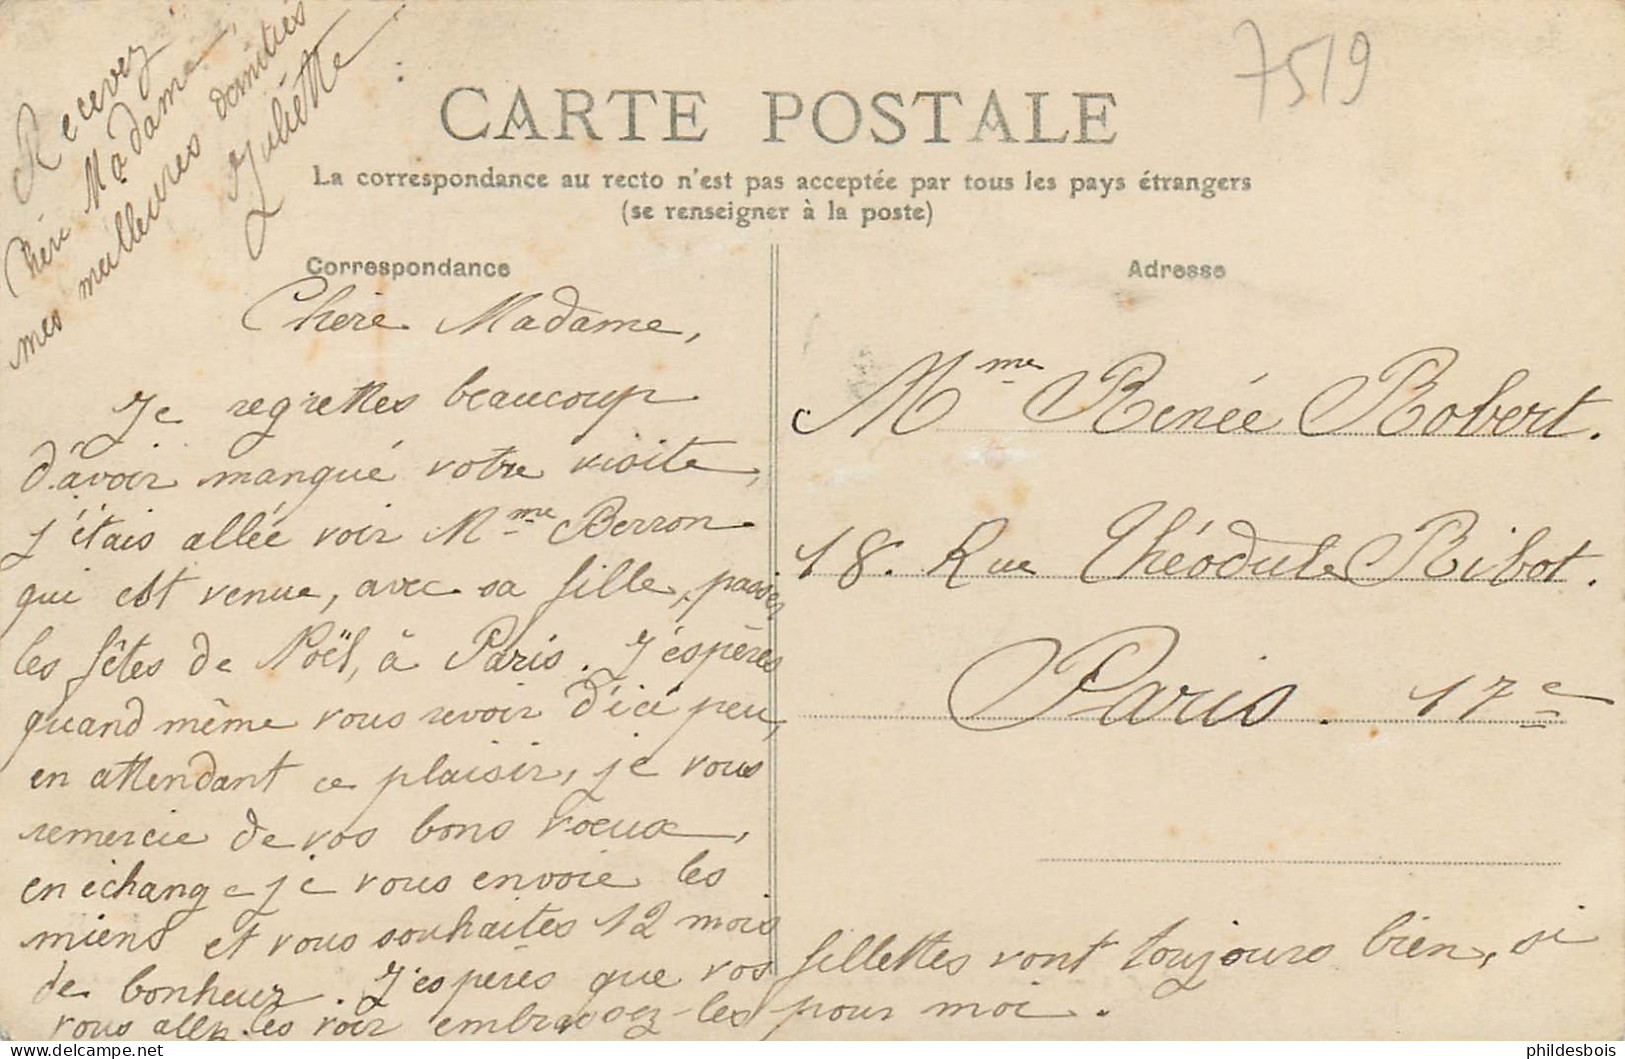 7519
CARTE POSTALE
La correspondance au recto n'est pas acceptée par tous les pays étrangers
(se renseigner à la poste)
Correspondance
Adresse
Chère Madame,
Je regrettes beaucoup
d'avoir manqué votre visite,
j'étais allée voir Mme Berron
qui est venue, avec sa fille, passer
les fêtes de Noël, à Paris. J'espères
quand même vous revoir d'ici peu,
en attendant ce plaisir, je vous
remercie de vos bons voeux,
en échange je vous envoie les
miens et vous souhaites 12 mois
de bonheur. J'espères que vos fillettes vont toujours bien, si
vous allez les voir embrassez-les pour moi.
Recevez
chère Madame,
mes meilleures d'amitiés
Juliette
Mme Renée Robert.
18. Rue Théodule Ribot.
Paris. 17e
phildesbois